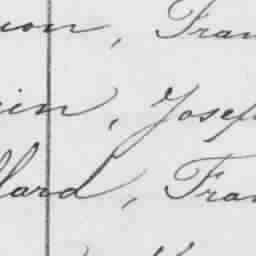 uon, Fran
in, Josep
llard, Fran